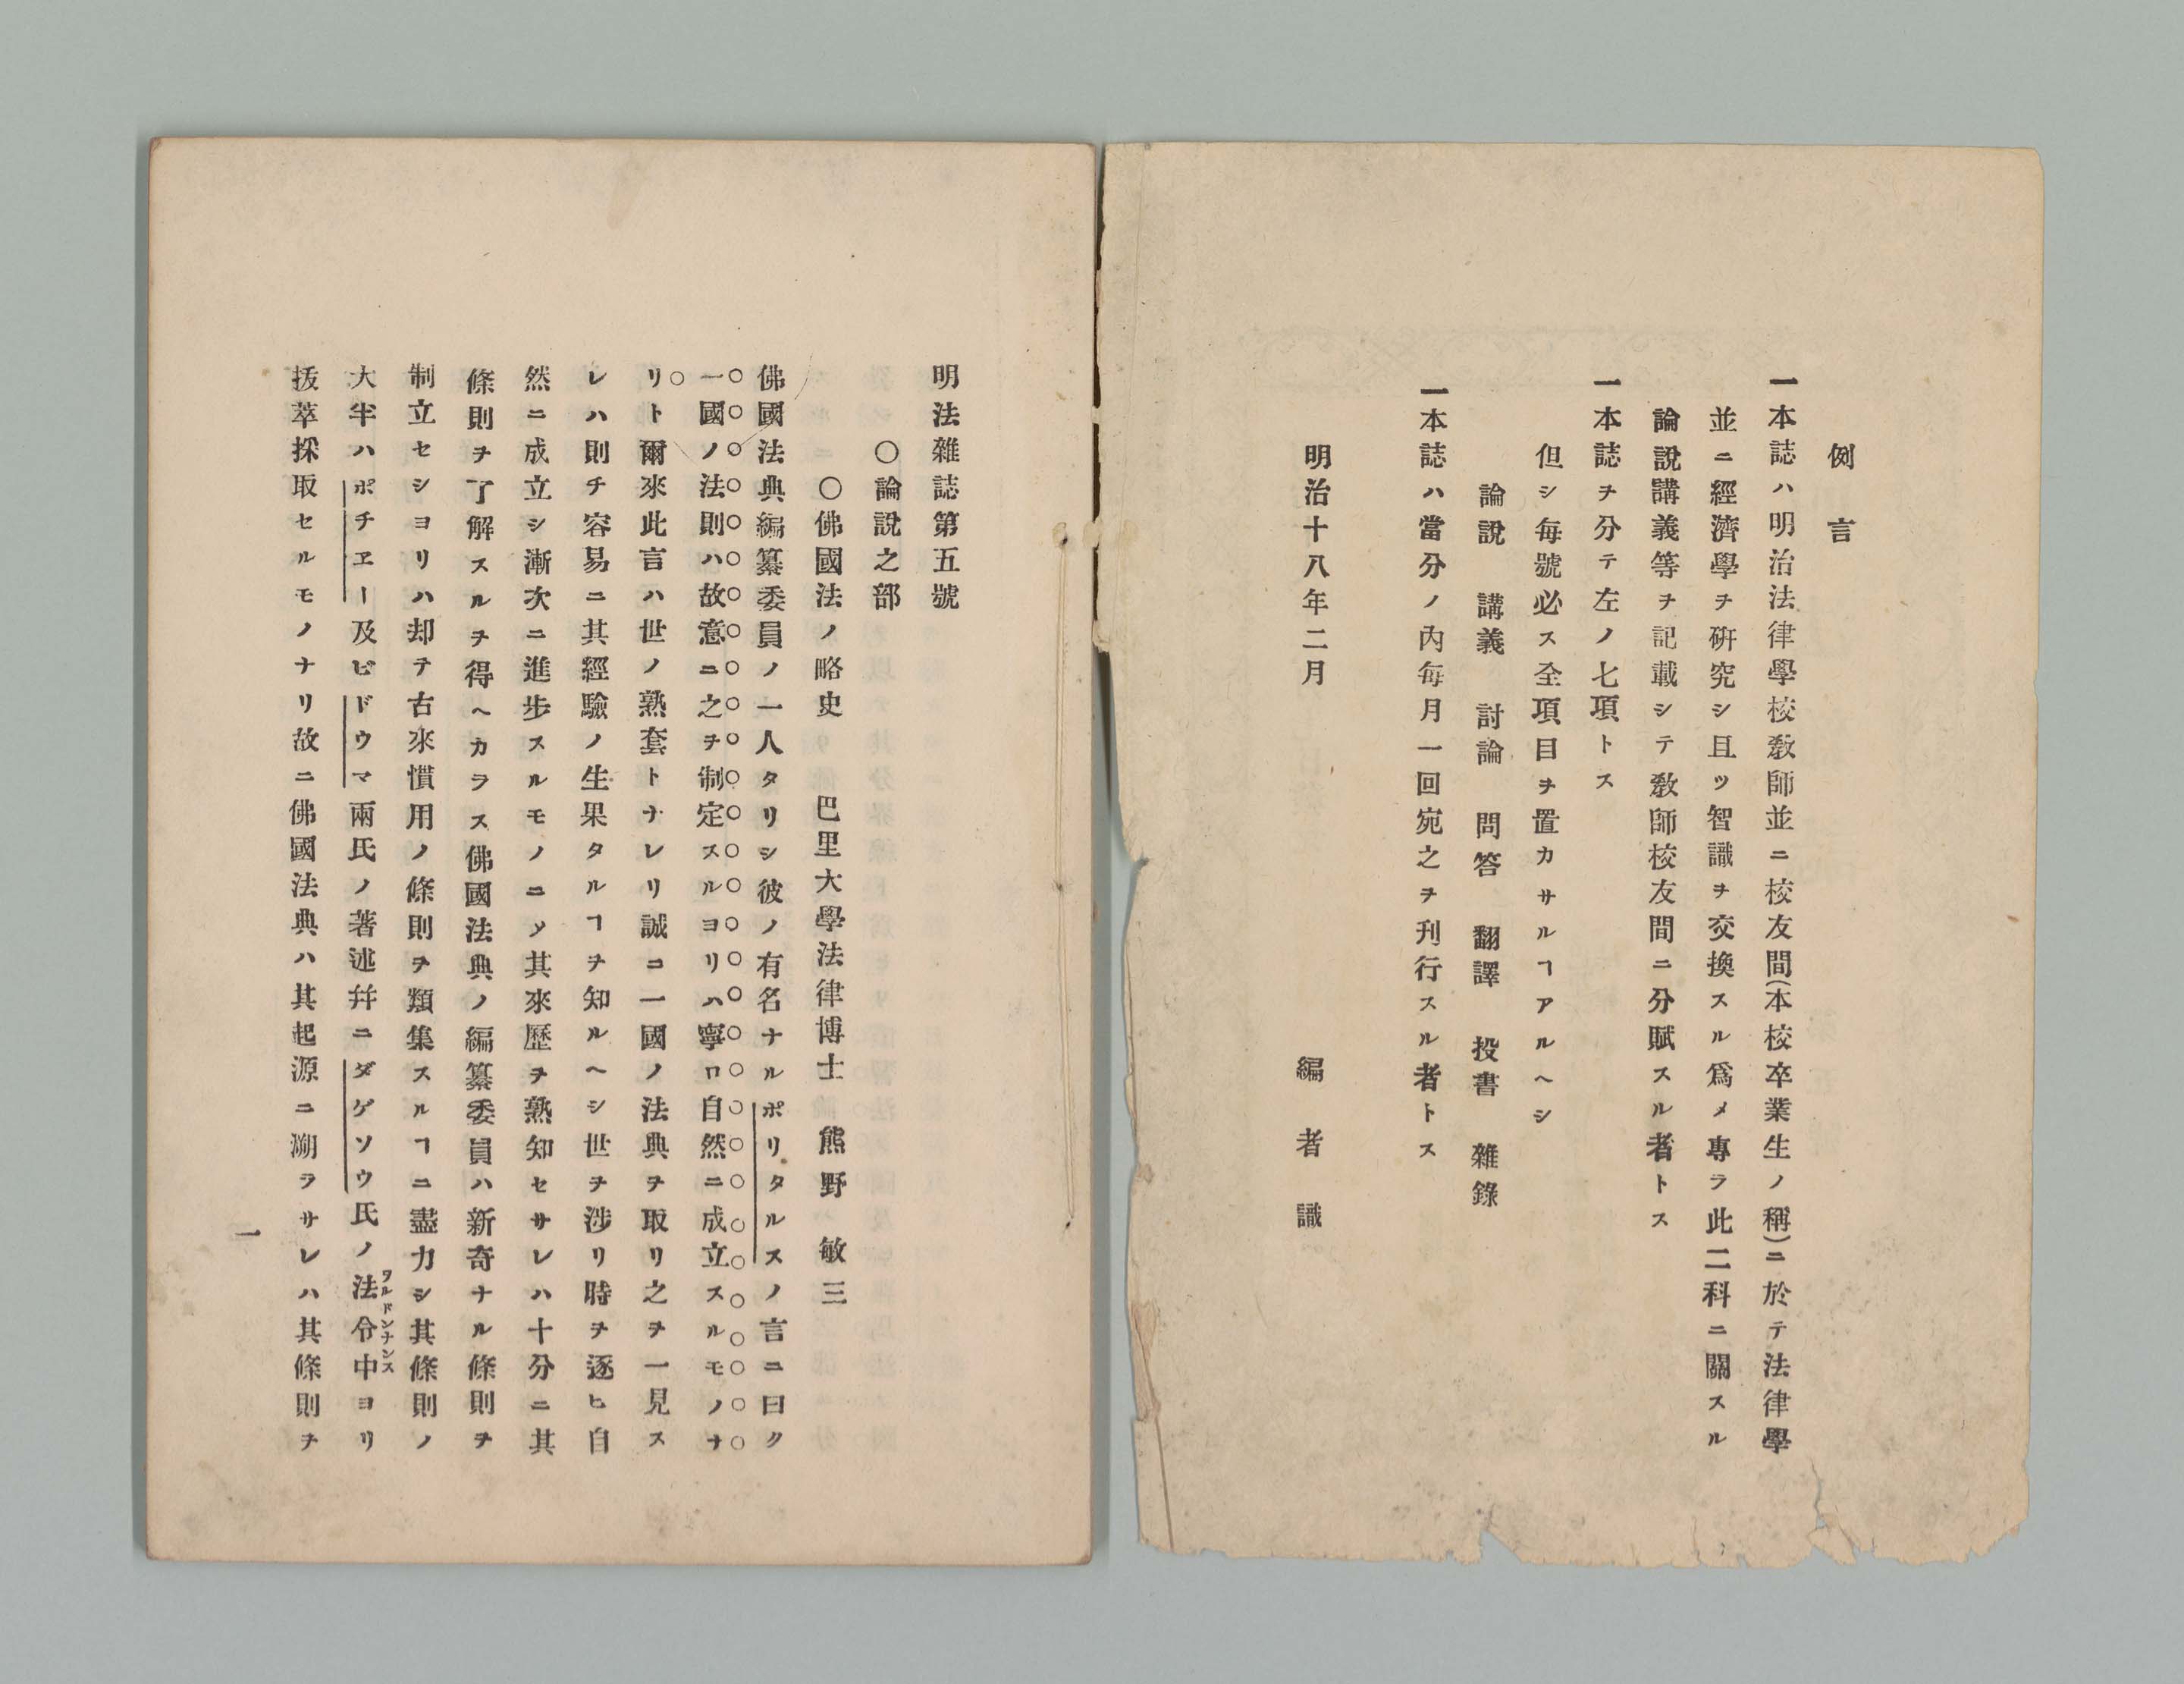 例言
一本誌ハ明治法律學校敎師並ニ校友間(本校卒業生ノ稱)ニ於テ法律學
並ニ經濟學ヲ硏究シ且ツ智識ヲ交換スル爲メ專ラ此二科ニ關スル
論說講義等ヲ記載シテ敎師校友間ニ分賦スル者トス
一本誌ヲ分テ左ノ七項トス
但シ每號必ス全項目ヲ置カサルヿアルヘシ
論說 講義 討論 問答 翻譯 投書 雜錄
一本誌ハ當分ノ內每月一回宛之ヲ刋行スル者トス
明治十八年二月
編者識
明法雜誌第五號
○論說之部
○佛國法ノ略史 巴里大學法律博士 熊野敏三
佛國法典編纂委員ノ一人タリシ彼ノ有名ナルポリタルスノ言ニ曰ク
一國ノ法則ハ故意ニ之ヲ制定スルヨリハ寧ロ自然ニ成立スルモノナ
リト爾來此言ハ世ノ熟套トナレリ誠ニ一國ノ法典ヲ取リ之ヲ一見ス
レハ則チ容易ニ其經驗ノ生果タルヿヲ知ルヘシ世ヲ涉リ時ヲ逐ヒ自
然ニ成立シ漸次ニ進步スルモノニメ其來歷ヲ熟知セサレハ十分ニ其
條則ヲ了解スルヲ得ヘカラス佛國法典ノ編纂委員ハ新奇ナル條則ヲ
制立セシヨリハ却テ古來慣用ノ條則ヲ類集スルヿニ盡力シ其條則ノ
大半ハポチエー及ビドウマ兩氏ノ著述幷ニダゲソウ氏ノ法令中ヨリ
ヲルドンナンス
拔萃採取セルモノナリ故ニ佛國法典ハ其起源ニ溯ラサレハ其條則ヲ
一